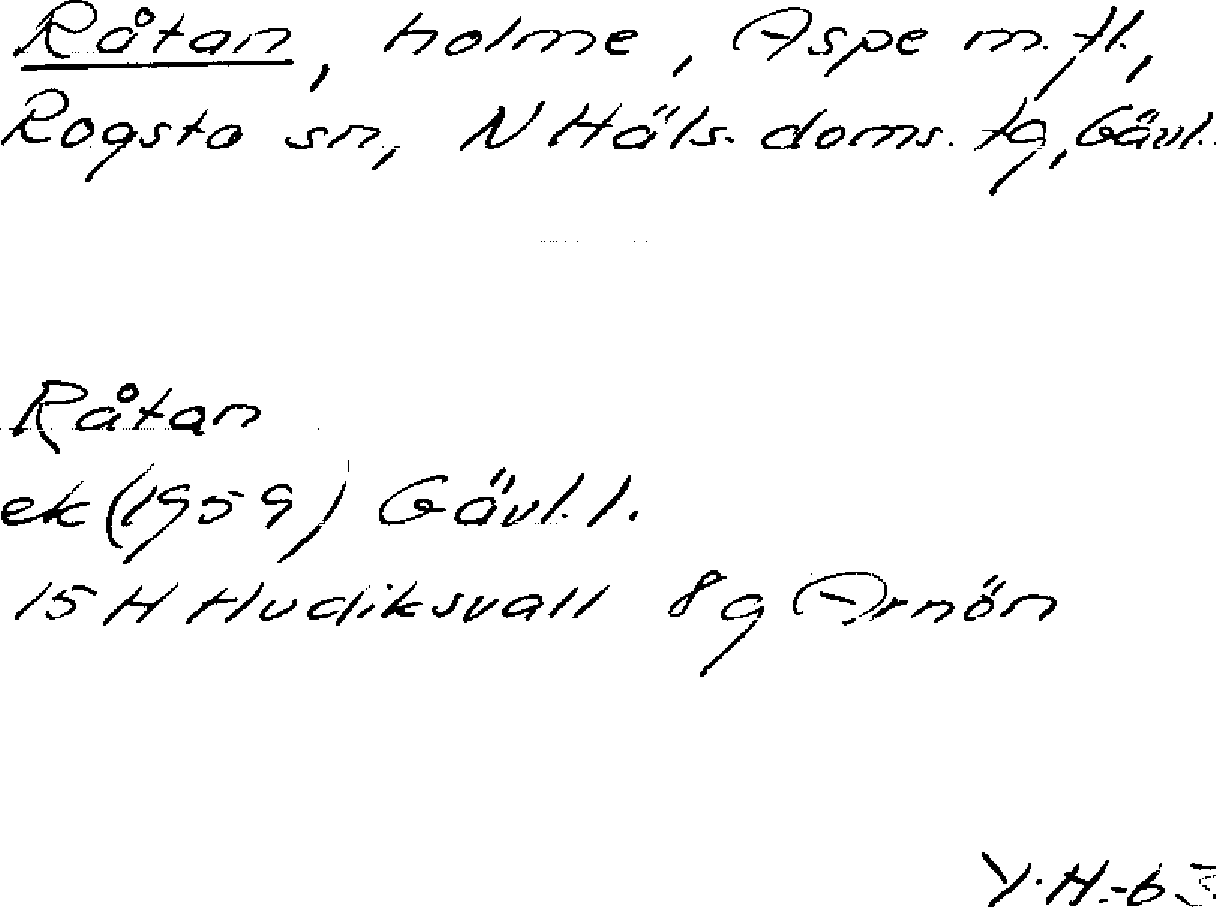 Råtan, holme, Aspe m.fl.,
Rogsta sn, N Häls. doms. tg, Gävl.
Råtan
ek (1959) Gävl. l.
15 H Hudiksvall 8g Arnön
Y.H.-63